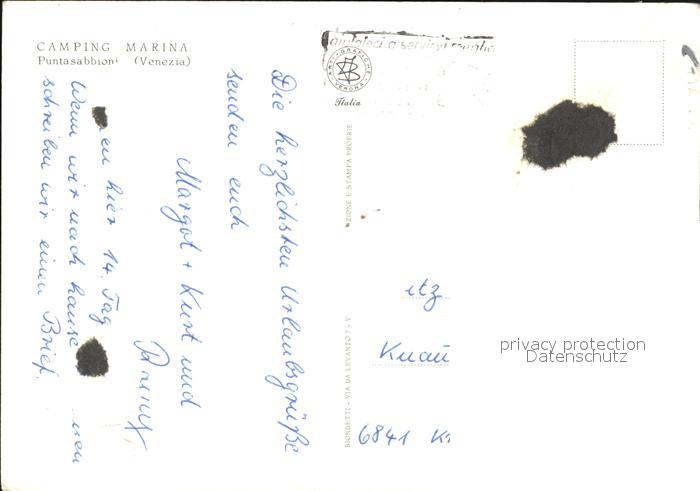 CAMPING MARINA
Puntasabbioni (Venezia)
Die herzlichsten Urlaubsgrüße
senden euch
Margot + Kurt und
en hier 14. Tag
Wenn wir nach hause
schreiben wir einen Brief.
aiutateci a servirvi meglio
Italia
ZIONE E STAMPA PROPRIE
BIONDETTI - VIA DA LEVANTO 7 - V
itz
Knau
6841
privacy protection
Datenschutz